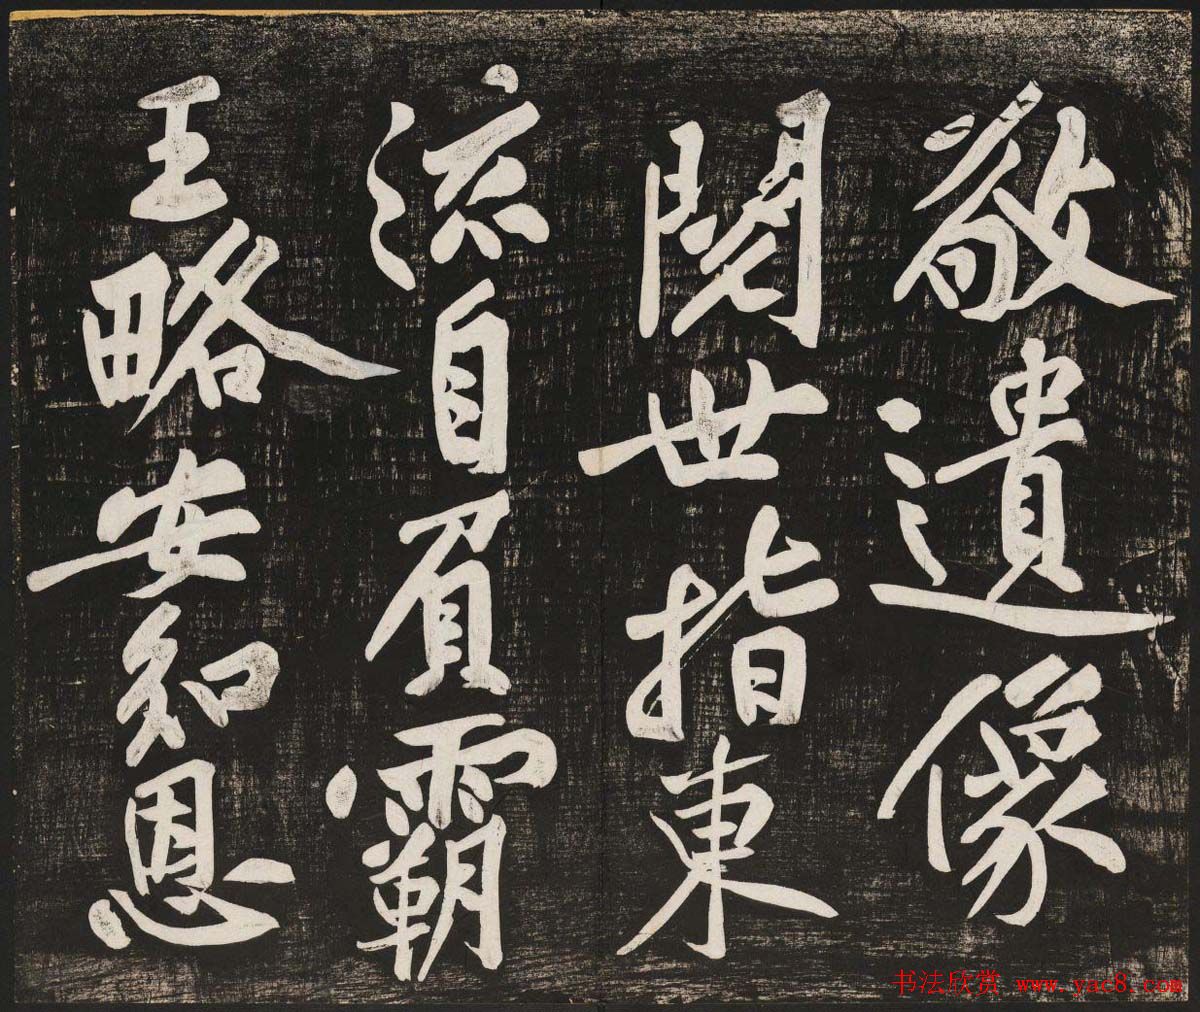 敬遺像
閱世指東
流自眉霸
王略安知恩
书法欣赏 www.yac8.com